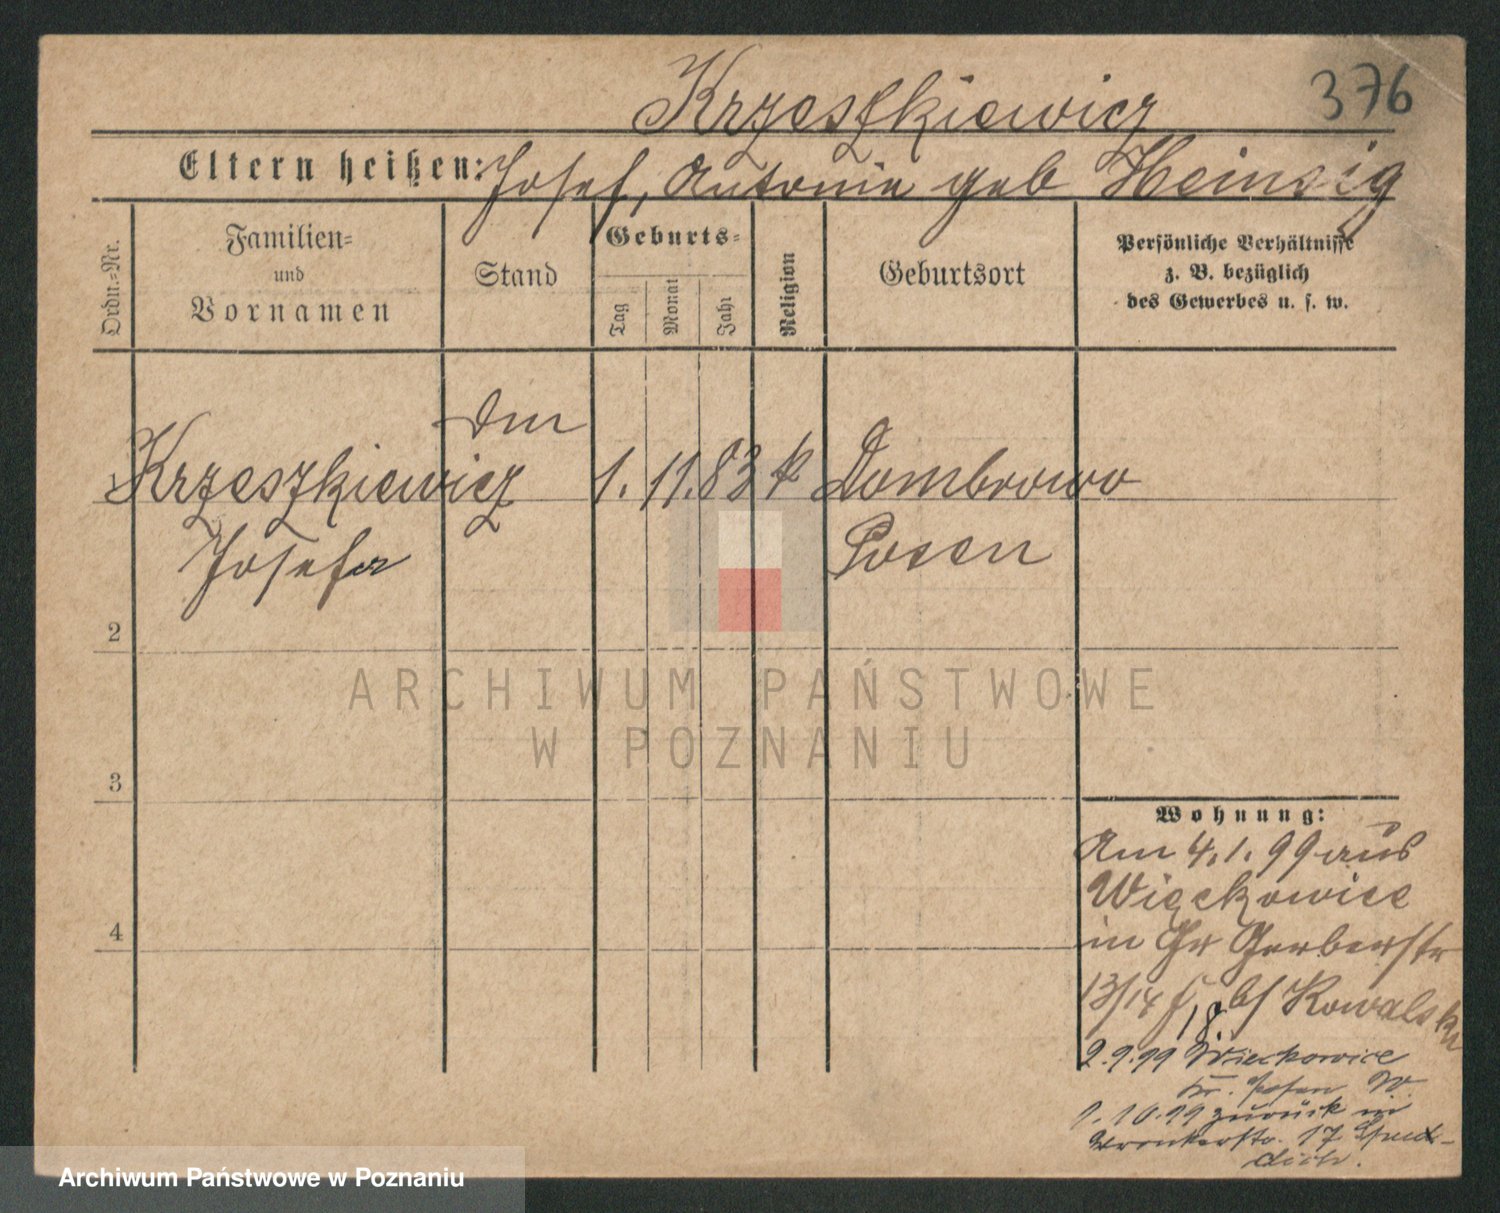 376
Krzeszkiewicz
Eltern heißen: Josef, Antonie geb Heinsig
Ordn.=Nr.
Familien=
und
Vornamen
Stand
Geburts=
Tag
Monat
Jahr
Religion
Geburtsort
Persönliche Verhältnisse
z. B. bezüglich
des Gewerbes u. s. w.
1 Krzeszkiewicz 1. 11. 83 k Dombrowo
Josefa Posen
2
3
4
Wohnung:
Am 4.1.99 aus
Więckowice
in Gr Gerberstr
13/14 b/ Kowalski
18.
2.9.99 Wieckowice
Kr. Posen W.
1.10.99 zurück in
Wronkerstr. 17
ARCHIWUM PAŃSTWOWE
W POZNANIU
Archiwum Państwowe w Poznaniu